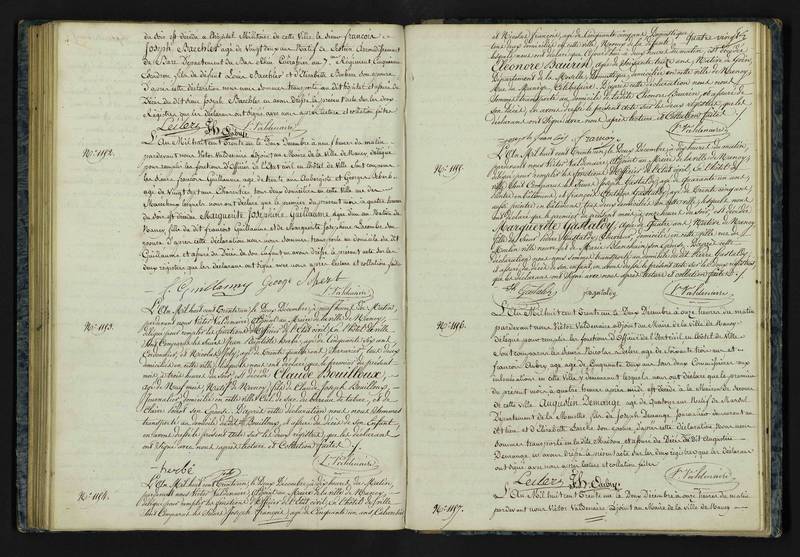 du soir est décédé à l'hôpital Militaire de cette Ville, le sieur françois
Joseph Baechler âgé de vingt deux ans Natif de
de Bare Département du Bas Rhin
fils de défunt Louis Baechler et d'Elisabeth
D'après cette déclaration nous nous sommes transporté au dit hôpital et assuré du
Décès du dit sieur Joseph Baechler en avons dressé le présent acte sur les deux
Registres que les déclarans ont signé avec nous après lecture et collation faite
Leclerc Th Aubry V. Valdenaire
N.° 1192.
L'An Mil huit cent Trente un le Deux Décembre à neuf heures du matin
pardevant nous Victor Valdenaire adjoint au Maire de la Ville de Nancy délégué
pour remplir les fonctions d'Officier de l'Etat civil en l'hôtel de Ville sont comparus
les sieurs françois Guillaume âgé de trente ans Aubergiste et Georges
âgé de vingt sept ans Charcutier tous deux domiciliés en cette Ville rue des
Maréchaux lesquels nous ont déclaré que le premier du présent mois à quatre heures
du soir est décédée Marguerite Joséphine Guillaume âgée d'un an Native de
Nancy, fille du dit françois Guillaume et de Marguerite Josephine
épouse. D'après cette déclaration nous nous sommes transporté au domicile du dit
Guillaume et assuré du Décès de son Enfant en avons dressé le présent acte sur les
deux registres que les déclarans ont signé avec nous après lecture et collation faite
V. Valdenaire
N.° 1193.
L'An Mil huit cent Trente un, le Deux Décembre, à neuf heures du Matin,
pardevant nous Victor Valdenaire, adjoint au Maire de la ville de Nancy,
délégué pour remplir les fonctions d'Officier de l'Etat civil, en l'hôtel de ville
Sont Comparus les Sieurs Jean Baptiste herbé, âgé de Cinquante
Cordonnier, et Nicolas Joly, âgé de trente quatre ans, tous deux
domiciliés en cette ville, lesquels nous ont déclaré que le premier du présent
mois, à trois heures du soir, est décédé Claude Bouilleux,
âgé de Neuf mois, Natif de Nancy, fils de Claude Joseph Bouilleux,
Journalier, domicilié en cette ville
Claire son Epouse. D'après cette déclaration nous nous sommes
transporté au domicile du dit Bouilleux, et assuré du décès de son Enfant,
en avons dressé le présent acte sur les deux registres, que les déclarans
ont signé avec nous, après lecture et Collation faite.
herbé V. Valdenaire
N.° 1194.
L'An Mil huit cent Trente un, le Deux Décembre, à dix heures du Matin,
pardevant nous Victor Valdenaire, adjoint au Maire de la ville de Nancy,
délégué pour remplir les fonctions d'Officier de l'état civil, en l'hôtel de ville
Sont Comparus les Sieurs Joseph françois, âgé de Cinquante un ans,
et Nicolas françois, âgé de Cinquante cinq ans, Domestique
tous deux domiciliés en cette ville,
Eléonore Baurin, âgée de
Département de la Moselle, Domestique, domiciliée en cette ville de Nancy,
D'après cette déclaration nous nous
sommes transporté au domicile de la dite Eléonore Baurin, et assuré de
son décès, en avons dressé le présent acte sur les deux registres, que les
déclarans ont signé avec nous, après lecture et Collation faite.
françois V. Valdenaire
N.° 1195.
L'An Mil huit cent Trente un, le Deux Décembre, à dix heures du matin,
pardevant nous Victor Valdenaire, adjoint au Maire de la ville de Nancy,
délégué pour remplir les fonctions d'Officier de l'état civil, en l'hôtel de
ville, Sont Comparus les Sieurs Joseph Gastaldy, âgé de quarante un ans,
peintre en bâtiment, et françois Gastaldy, âgé de trente cinq ans,
aussi peintre en bâtiment, tous deux domiciliés en cette ville, lesquels nous
ont déclaré que le premier du présent mois, à onze heures du soir, est décédée
Marguerite Gastaldy, âgée de quatre ans, Native de
Nancy, fille de Pierre Gastaldy, domicilié en cette ville, rue
son Epouse. D'après cette
déclaration, nous nous sommes transporté au domicile du dit Pierre Gastaldy,
et assuré du décès de son enfant, en avons dressé le présent acte sur les deux registres
que les déclarans ont signé avec nous, après lecture et collation faite.
Gastaldy fgastaldy V. Valdenaire
N.° 1196.
L'An Mil huit cent Trente un le Deux Décembre à onze heures du matin
pardevant nous Victor Valdenaire adjoint au Maire de la Ville de Nancy
délégué pour remplir les fonctions d'Officier de l'Etat civil en l'hôtel de Ville
sont comparus les sieurs Nicolas Leclerc âgé de Soixante trois ans et
François Aubry âgé de cinquante deux ans tous deux Commissaires aux
inhumations en cette Ville y demeurant lesquels nous ont déclaré que le premier
du présent mois à quatre heures après midi est décédé à la Maison de Secours
de cette ville Augustin Demange âgé de quatorze ans Natif de
Département de la Meurthe fils de Joseph Demange Journalier demeurant
au dit lieu et d'Elisabeth son épouse, d'après cette déclaration nous nous
sommes transporté en la dite Maison et assuré du Décès du dit Augustin
Demange en avons dressé le présent acte sur les deux registres que les déclarans
ont signé avec nous après lecture et collation faite
Leclerc Th. Aubry V. Valdenaire
N.° 1197.
L'An Mil huit cent Trente un le Deux Décembre à onze heures du matin
pardevant nous Victor Valdenaire adjoint au Maire de la ville de Nancy